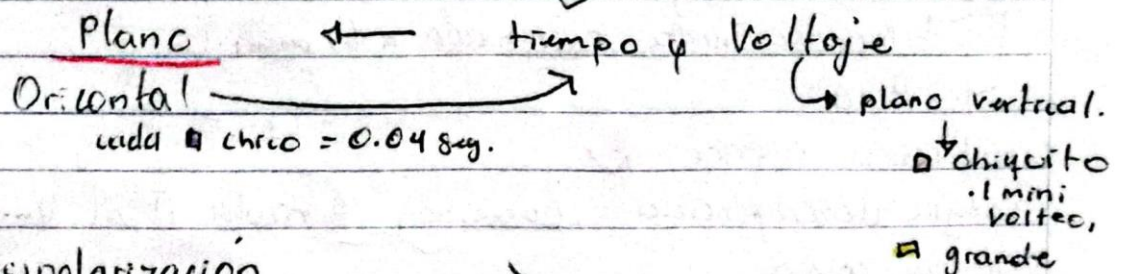 Plano ← tiempo y Voltaje
Orizontal → plano vertical.
cada chico = 0.04 seg.
↓ chiquito
.1 mini
volteo,
grande